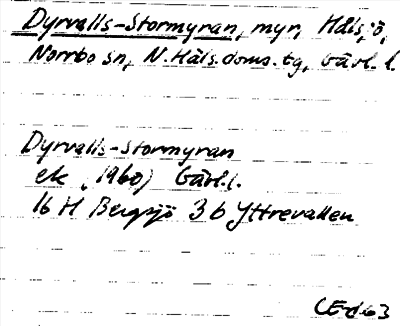 Dyrvalls-Stormyran, myr, Hälsjö,
Norrbo sn, N. Häls. doms. tg, Gävl. l.
Dyrvalls-Stormyran
ek (1960) Gävl. l.
16 H Bergsjö 3 b Yttrevallen